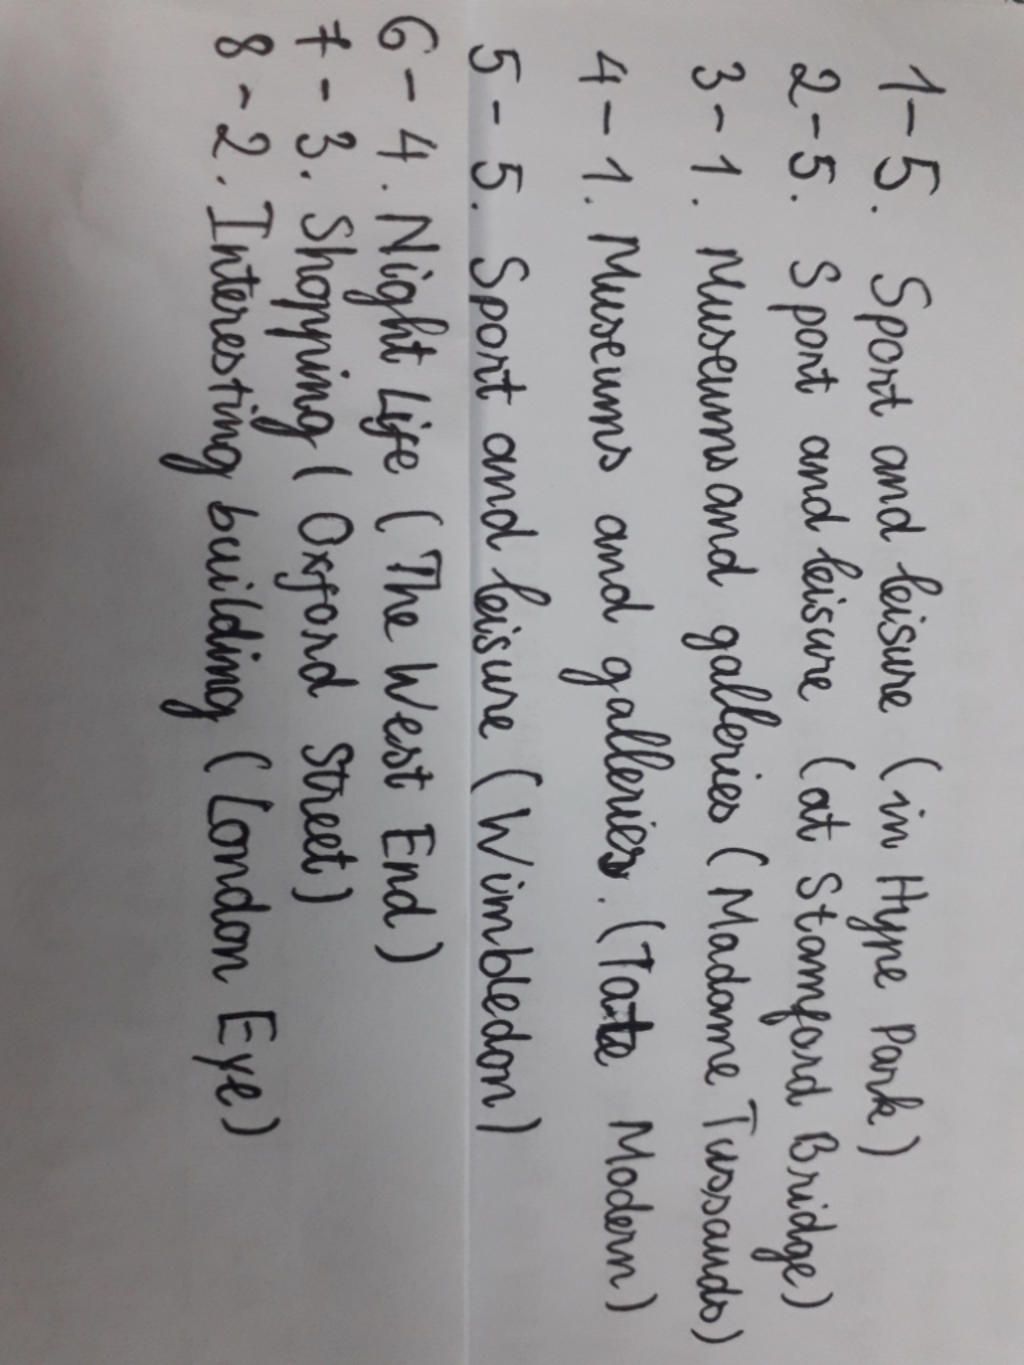 1-5. Sport and leisure (in Hype Park)
2-5. Sport and leisure (at Stamford Bridge)
3-1. Museums and galleries (Madame Tussauds)
4-1. Museums and galleries. (Tate Modern)
5-5. Sport and leisure (Wimbledon)
6-4. Night Life (The West End)
7-3. Shopping (Oxford Street)
8-2. Interesting building (London Eye)